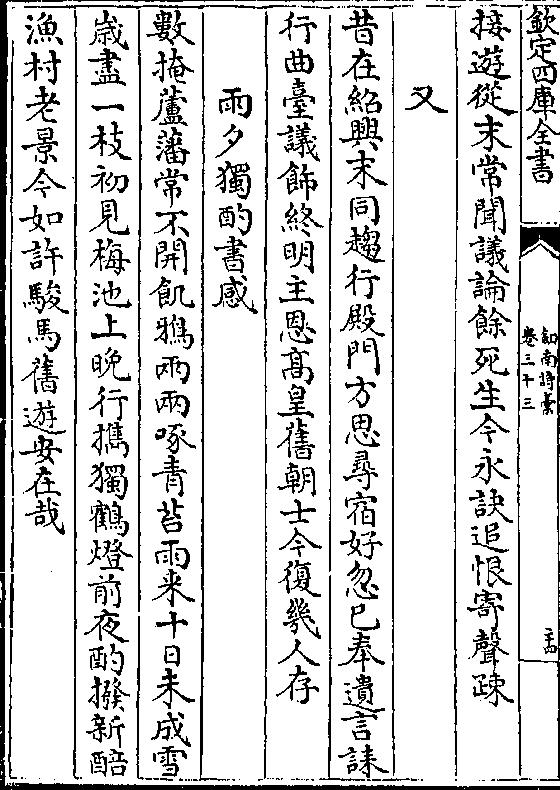 欽定四庫全書
劍南詩藁
卷三十三
接遊從末常聞議論餘死生今永訣追恨寄聲疎
又
昔在紹興末同趨行殿門方思尋宿好忽已奉遺言誄
行曲臺議飾終明主恩髙皇舊朝士今復幾人存
雨夕獨酌書感
數掩蘆藩常不開飢鴉兩兩啄青苔雨来十日未成雪
嵗盡一枝初見梅池上晚行攜獨鶴燈前夜酌撥新醅
漁村老景今如許駿馬舊遊安在哉